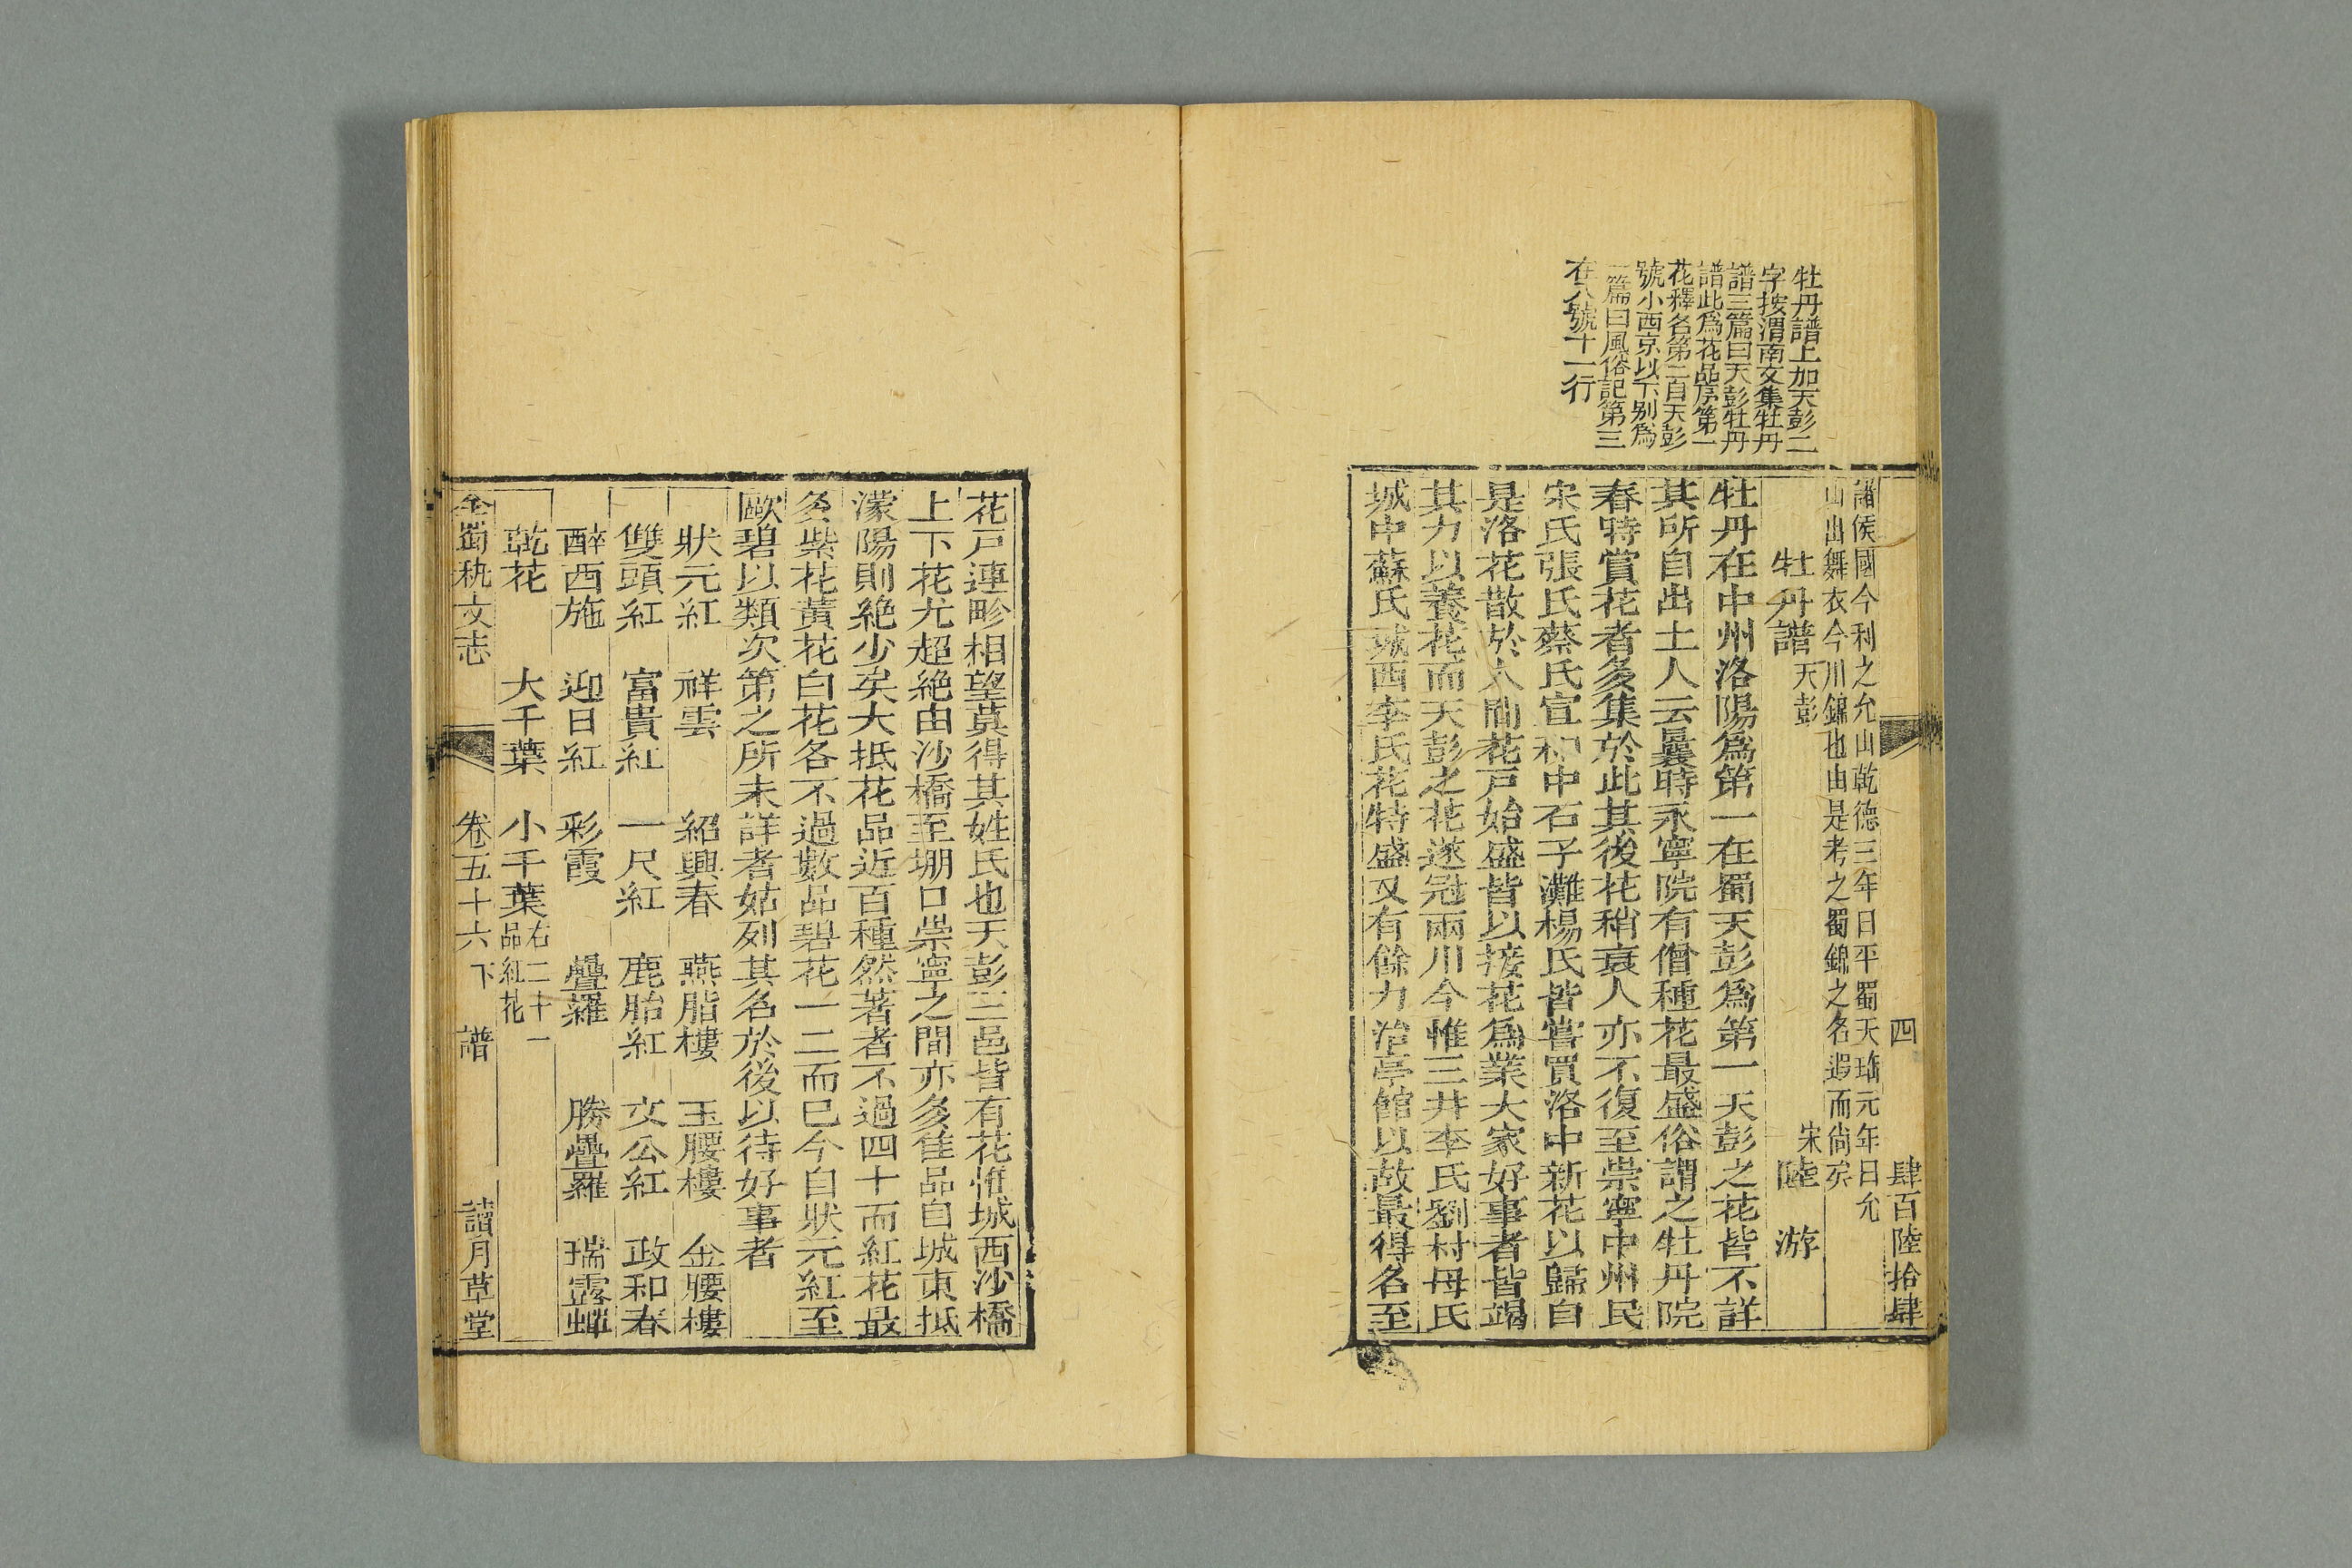 牡丹譜上加天彭二
字按渭南文集牡丹
譜三篇曰天彭牡丹
譜此爲花品序第一
花釋名第二自天彭
號小西京以下别爲
一篇曰風俗記第三
在八號十一行
四 肆百陸拾肆
諸侯國今利之允山乾德三年日平蜀天瑞元年日允
山出舞衣今川錦也由是考之蜀錦之名遐而尙矣
牡丹譜 天彭 宋陸 游
牡丹在中州洛陽爲第一在蜀天彭爲第一天彭之花皆不詳
其所自出土人云曩時永寧院有僧種花最盛俗謂之牡丹院
春時賞花者多集於此其後花稍衰人亦不復至崇寧中州民
宋氏張氏蔡氏宣和中石子灘楊氏皆嘗買洛中新花以歸自
是洛花散於人間花戸始盛皆以接花爲業大家好事者皆竭
其力以養花而天彭之花遂冠兩川今惟三井李氏劉村母氏
城中蘇氏城西李氏花特盛又有餘力治亭館以故最得名至
花戸連畛相望莫得其姓氏也天彭三邑皆有花惟城西沙橋
上下花尤超絶由沙橋至堋口崇寧之間亦多佳品自城東抵
濛陽則絶少矣大抵花品近百種然著者不過四十而紅花最
多紫花黃花白花各不過數品碧花一二而已今自狀元紅至
歐碧以類次第之所未詳者姑列其名於後以待好事者
狀元紅 祥雲 紹興春 燕脂樓 玉腰樓 金腰樓
雙頭紅 富貴紅 一尺紅 鹿胎紅 文公紅 政和春
醉西施 迎日紅 彩霞 疊羅 勝疊羅 瑞露蟬
乾花 大千葉 小千葉 右二十一品紅花
全蜀秇文志 卷五十六下 譜 讀月草堂